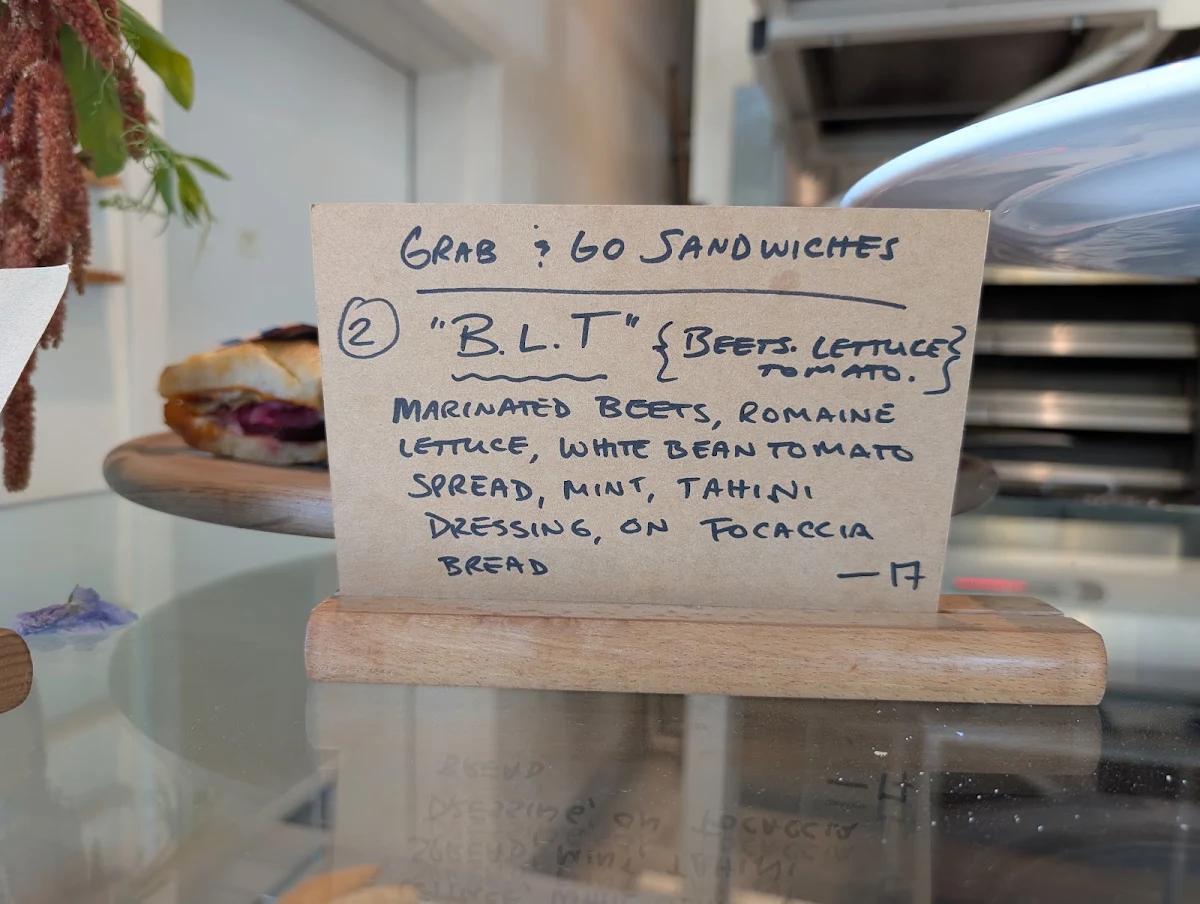 GRAB & GO SANDWICHES
② "B.L.T" {BEETS. LETTUCE
TOMATO.}
MARINATED BEETS, ROMAINE
LETTUCE, WHITE BEAN TOMATO
SPREAD, MINT, TAHINI
DRESSING, ON FOCACCIA
BREAD
—17